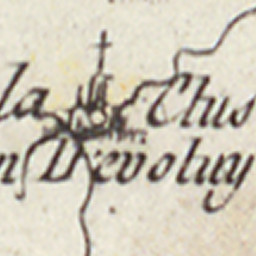 la Clus
n Devoluy